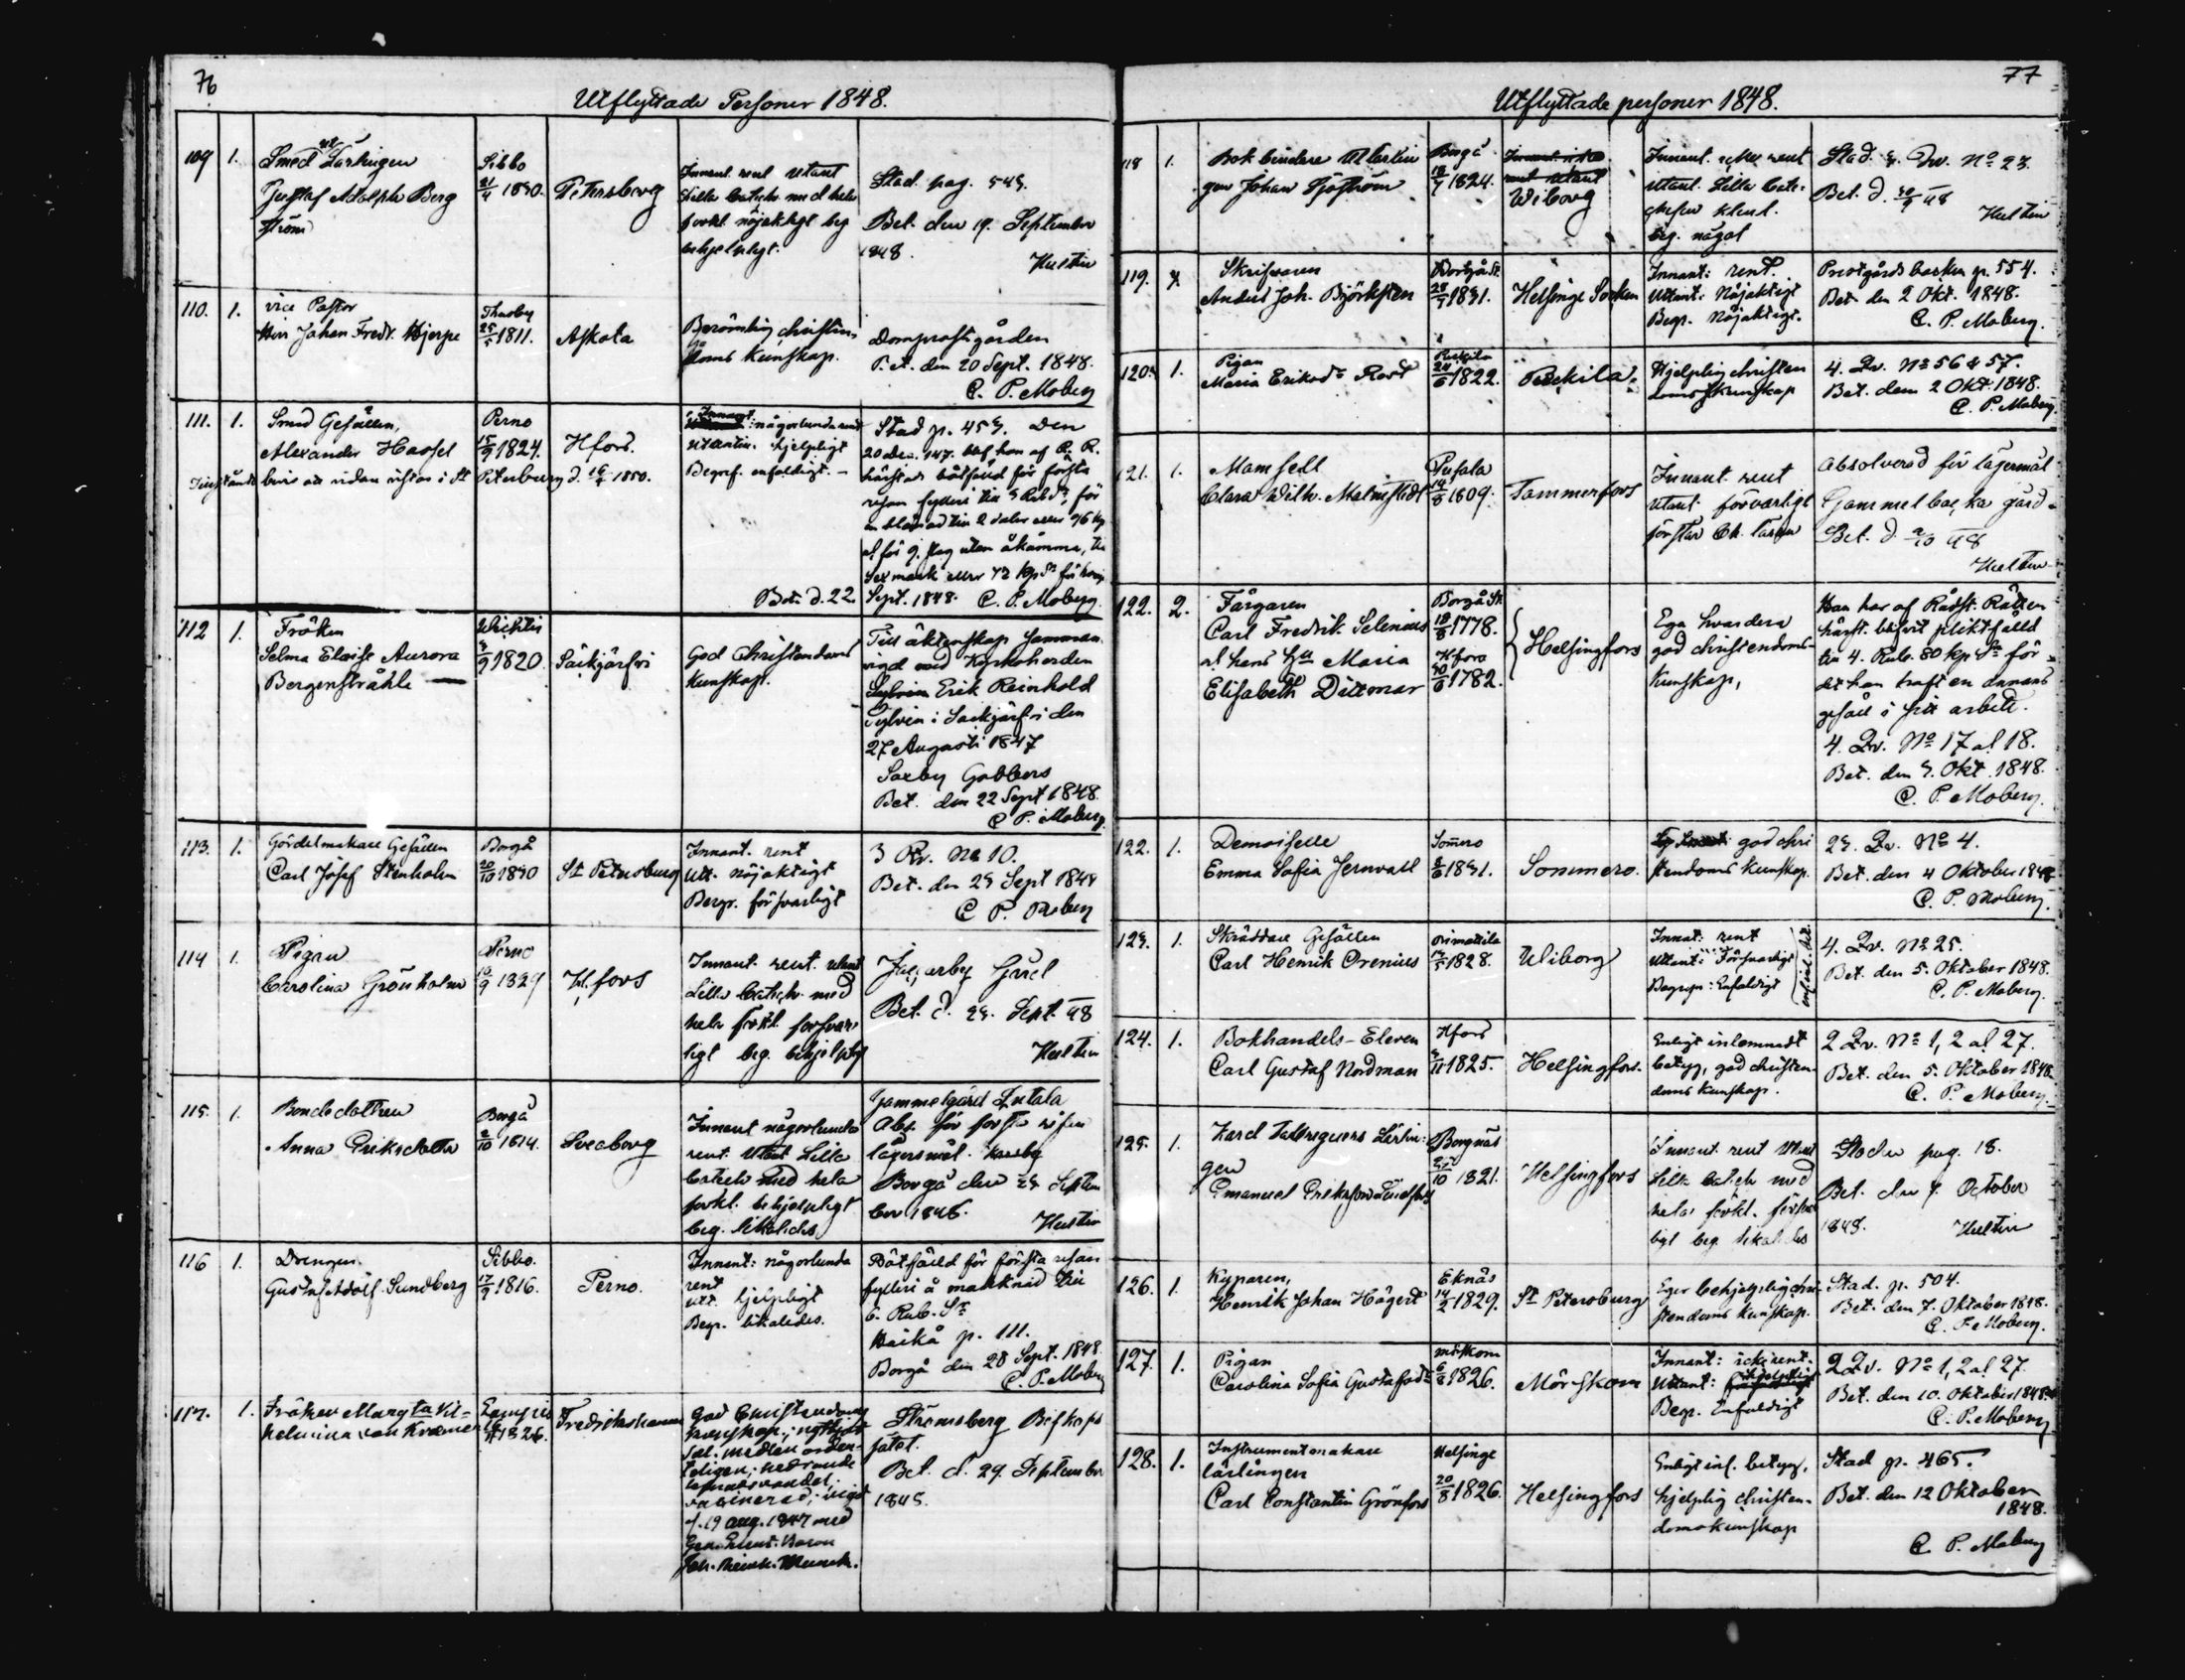 76
Utflyttade Personer 1848.
109 1. Smed Lärlingen
Gustaf Adolph Berg
ström
Sibbo
21/4 1830.
Petersborg
Innant. rent Utant
Lilla Catech. med hela
forkl. nöjaktigt beg
behjelpligt.
Stad. pag. 543.
Bet. den 19. September
1848.
Hultin
110. 1. vice Pastor
Herr Johan Fredr. Hjerpe
Thusby
25/5 1811.
Askola
Berömlig christen-
doms Kunskap.
Domprostgården
P. A. den 20 Sept. 1848.
C. P. Moberg
111. 1. Smed Gesällen,
Alexander Hassel
Perno
15/9 1824.
Hfors.
d. 16/4 1850.
Innant: någorlunda rent
Utantin. hjelpligt
Begref. enfaldigt. –
Stad p. 453. Den
20 Dec. 147. blef han af
härstäd. bötfäld för första
resan fylleri till 3 Rub Sr, för
Bet. d. 22. Sept. 1848. C. P. Moberg
112 1. Fröken
Selma Eloise Aurora
Bergenstråhle
Wichtis
1820.
Säkjärfvi
God Christendoms
Kunskap.
Till äktenskap samman
vigd med Kyrkoherden
Erik Reinhold
Sylvin i Säckjärfvi den
27 Augusti 1847
Saxby Gobbers
Bet. den 22 Sept 1848.
C P. Moberg.
113. 1. Gördelmakare Gesällen
Carl Josef Stenholm
Borgå
20/10 1830
St Petersburg
Innant. rent
Utt. nöjaktigt
Begr. försvarligt
3 Qv. No 10.
Bet. den 23 Sept 1848
C P. Moberg
114 1. Pigan
Carolina Grönholm
Perno
1829
H.fors
Innant. rent. utant
Lilla Catech. med
hela forkl. forsvar
ligt beg. behjelpligt
Bet. d. 23. Sept. 48
Hultin
115. 1. Bondedottren
Anna Eriksdotter
Borgå
2/10 1814.
Sveaborg
Innant någorlunda
rent. Utant Lilla
Catech med hela
forkl. behjelpligt
beg. likaledes
Gammelgård
Abs. för första resan
lägersmål.
Borgå den 23 Septem
ber 1848.
Hultin
116 1. Drengen
Gustaf Adolf Sundberg
Sibbo.
17/9 1816.
Perno.
Innant: någorlunda
rent
utt. hjelpligt
Begr. likaledes.
Bötfäld för första resan
fylleri å marknad till
6. Rub. Sr
Baikå p. 111.
Borgå den 28 Sept. 1848
C. P. Moberg
117. 1. Fröken Margta Vil-
helmina von Kræmer
1826.
Fredrikshamn
God Christendoms
kunskap; nyttjat
sal. medlen orden-
teligen; hedrande
lefnadsvandel;
vaccinerad; vigd
d. 19 aug. 1847 med
Strömsberg Biskops
sätet.
Bet. d. 29. September
1848.
77
Utflyttade personer 1848.
118 1. Bokbindare Lärlin
gen Johan Sjöström
Borgå
18/7 1824.
Wiborg
Innant. icke rent
utant. Lilla Cate-
chesen klent.
beg. något
Stad. 3. Qv. No 23.
Bet. d. 30/9 48
Hultin
119. Skrifvaren
Anders Joh. Björksten
Borgå St.
1831.
Helsinge Socken
Innant: rent.
Uttant: Nöjaktigt
Begr. Nöjaktigt.
Prestgårds backen p. 554.
Bet. den 2 Okt. 1848.
C. P. Moberg.
120. 1. Pigan
Maria Eriksdr Rost
Puckila
24/6 1822.
Puckila.
Hjelplig christen
domskunskap
4. Qv. No 56 & 57.
Bet. den 2 Okt. 1848.
C. P. Moberg
121. 1. Mamsell
Clara Wilh. Malmstedt
Pusala
14/8 1809.
Tammerfors
Innant rent
Utant. försvarligt
förstår Ch. läran
Absolverad för lägersmål
Gammelbacka gård.
Bet. d. 2/10 48
Hultin
122. 2. Färgaren
Carl Fredrik Selenius
och hans Hu Maria
Elisabeth Dittmar
Borgå St.
18/8 1778.
Hfors
30/6 1782.
Helsingfors
Ega hvardera
god christendoms-
kunskap,
Han har af Rådst. Rätten
härst. blifvit pliktfälld
till 4. Rub. 80 kp Sr för
det han haft en annans
gesäll i sitt arbete.
4. Qv. No 17 a! 18.
Bet. den 3. Okt. 1848.
C. P. Moberg.
122. 1. Demoiselle
Emma Sofia Jernvall
Somero
1831.
Sommero.
god chri
stendoms Kunskap.
23. Qv. No 4.
Bet. den 4 Oktober 1848
C. P. Moberg.
123. 1. Skräddare Gesällen
Carl Henrik Orenius
Orimattila
1828.
Wiborg
Innat: rent
Utant: Försvarligt
Begrep: Enfaldigt
4. Qv. No 25.
Bet. den 5. Oktober 1848.
C. P. Moberg.
124. 1. Bokhandels-Eleven
Carl Gustaf Nordman
Hfors
3/11 1825.
Helsingfors.
Enligt inlemnadt
betyg, god christen
doms kunskap.
2 Qv. No 1, 2 a! 27.
Bet. den 5. Oktober 1848.
C. P. Moberg.
125. 1. Karl Lärlin-
gen
Emanuel Eriksson Lindfors
Borgnäs
1821.
Helsingfors
Innant. rent Utant
Lilla Catech med
hela forkl. försvar
ligt beg. likaledes
Staden pag. 18.
Bet. den 7. October
1848.
Hultin
126. 1. Kyparen,
Henrik Johan Hägert
Eknäs
14/2 1829.
St Petersburg
Eger behjelplig chri-
stendoms Kunskap.
Stad. p. 504.
Bet. den 7. Oktober 1848.
C. P. Moberg.
127. 1. Pigan
Carolina Sofia Gustafsdr
Mörskom
6/8 1826.
Mörskom
Innant: icke rent.
Uttant: hjelpligt
Begr. Enfaldigt
2 Qv. No 1, 2 a! 27.
Bet. den 10. Oktober 1848
C. P. Moberg
128. 1. Instrumentmakare
lärlingen
Carl Constantin Grönfors
Helsinge
20/8 1826.
Helsingfors
Enligt inl. betyg,
hjelplig christen-
domskunskap
Stad p. 465.
Bet. den 12 Oktober
1848.
C. P. Moberg